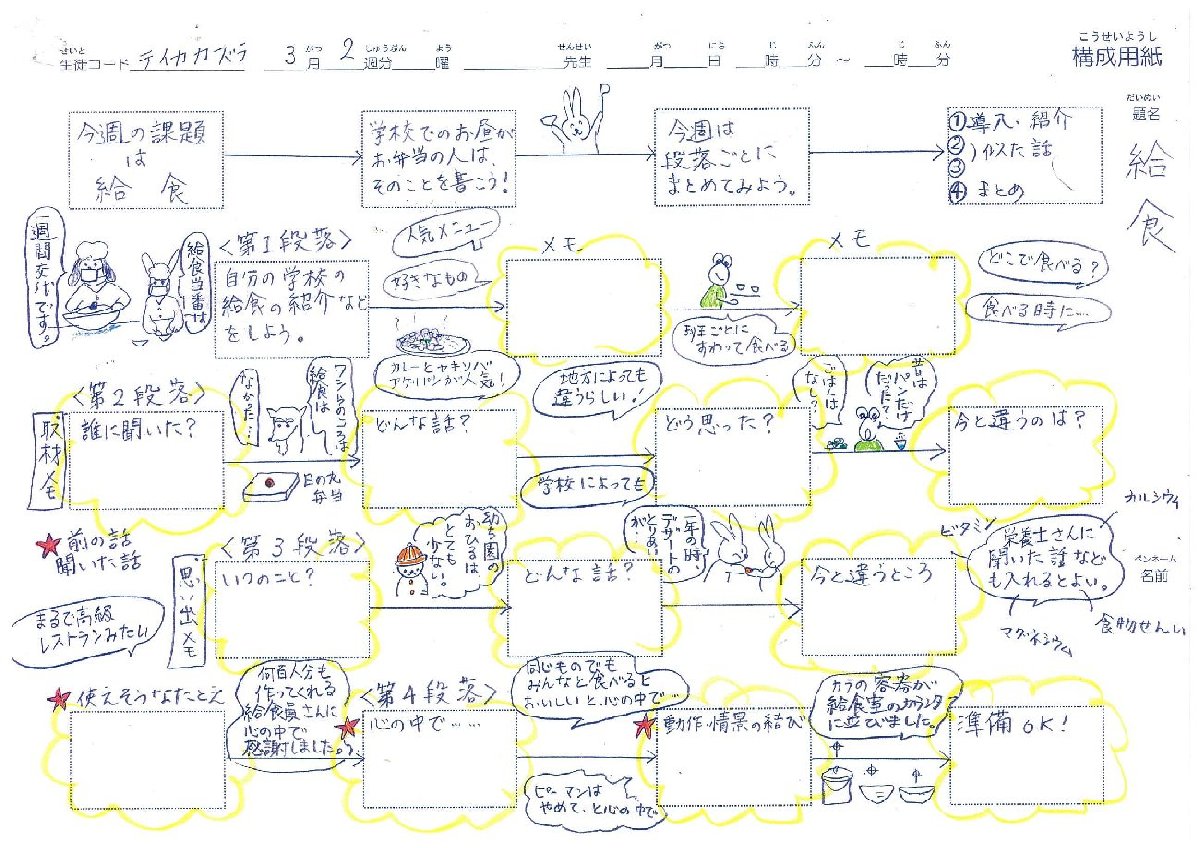 構成用紙
こうせいようし
せいと
生徒コード テイカカズラ
3月 2週分 曜 先生 月 日 時 分 ～ 時 分
がつ しゅうぶん よう せんせい がつ にち じ ふん じ ふん
だいめい
題名
給食
今週の課題
は
給 食
学校でのお昼が
お弁当の人は、
そのことを書こう!
今週は
段落ごとに
まとめてみよう。
①導入・紹介
②
③
似た話
④まとめ
給食当番は
一週間交代です。
<第1段落>
自分の学校の
給食の紹介など
をしよう。
人気メニュー
好きなもの
カレーとヤキソバ
アゲパンが人気!
メモ
班ごとに
すわって食べる
メモ
どこで食べる?
食べる時に…
<第2段落>
取材メモ
誰に聞いた?
ワシらのころは
給食は
なかった…
日の丸
弁当
どんな話?
地方によっても
違うらしい!
学校によっても
どう思った?
昔は
パンだけ
だった?
ごはんは
なし?
今と違うのは?
★前の話
聞いた話
<第3段落>
思い出メモ
いつのこと?
幼ち園の
おひるは
とても
少ない。
どんな話?
一年の時、
デザートの
とりあい
が…
今と違うところ
栄養士さんに
聞いた話など
も入れるとよい。
ビタミン
カルシウム
マグネシウム
食物せんい
ペンネーム
名前
まるで高級
レストランみたい
★使えそうなたとえ
何百人分も
作ってくれる
給食員さんに
心の中で
感謝しました。
<第4段落>
★心の中で……
同じものでも
みんなと食べると
おいしいと、心の中で…
ピーマンは
やめて、と心の中で
★動作・情景の結び
カラの容器が
給食室のカウンタ
に並びました。
準備OK!